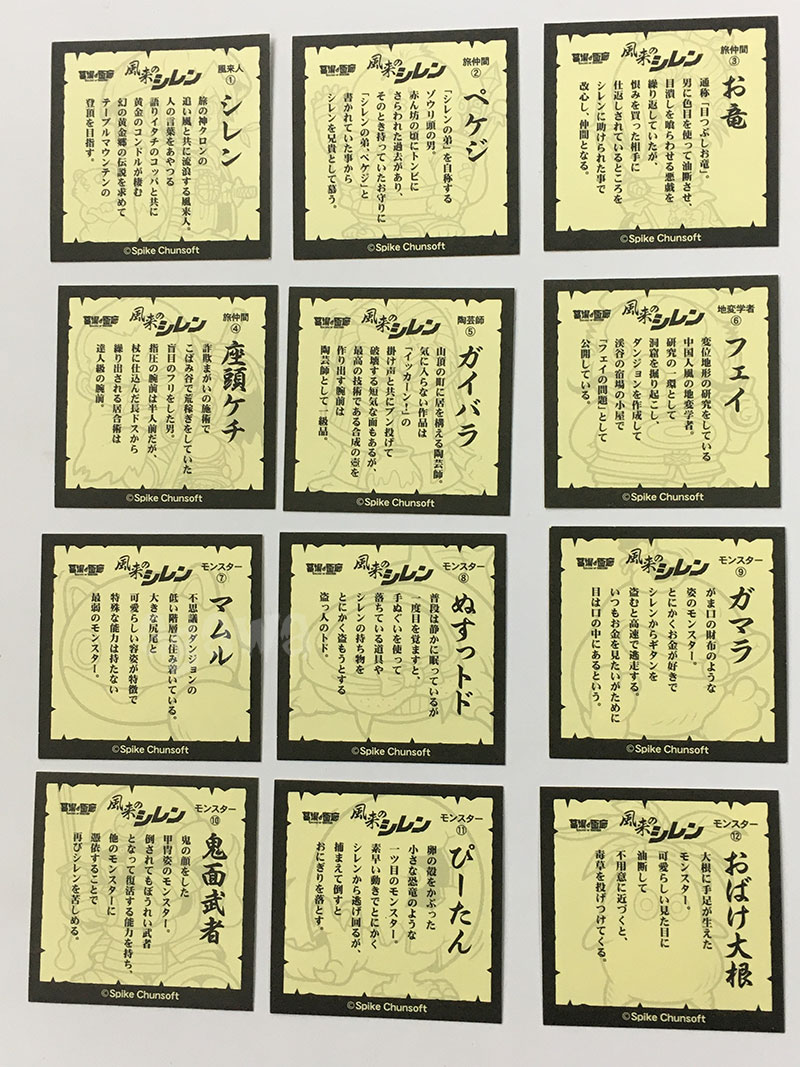 風来のシレン
風来人
①
シレン
旅の神クロンの
追い風と共に流浪する風来人。
人の言葉をあやつる
語りイタチのコッパと共に
黄金のコンドルが棲む
幻の黄金郷の伝説を求めて
テーブルマウンテンの
登頂を目指す。
©Spike Chunsoft
風来のシレン
旅仲間
②
ペケジ
「シレンの弟」を自称する
ゾウリ頭の男。
赤ん坊の頃にトンビに
さらわれた過去があり、
そのとき持っていたお守りに
「シレンの弟、ペケジ」と
書かれていた事から
シレンを兄貴として慕う。
©Spike Chunsoft
風来のシレン
旅仲間
③
お竜
通称「目つぶしお竜」。
男に色目を使って油断させ、
目潰しを喰らわせる悪戯を
繰り返していたが、
恨みを買った相手に
仕返しされているところを
シレンに助けられた事で
改心し、仲間となる。
©Spike Chunsoft
風来のシレン
旅仲間
④
座頭ケチ
詐欺まがいの施術で
こばみ谷で荒稼ぎをしていた
盲目のフリをした男。
指圧の腕前は半人前だが、
杖に仕込んだ長ドスから
繰り出される居合術は
達人級の腕前。
©Spike Chunsoft
風来のシレン
陶芸師
⑤
ガイバラ
山頂の町に居を構える陶芸師。
気に入らない作品は
「イッカーン!」の
掛け声と共にブン投げて
破壊する短気な面もあるが、
最高の技術である合成の壺を
作り出す腕前は
陶芸師として一級品。
©Spike Chunsoft
風来のシレン
地変学者
⑥
フェイ
変位地形の研究をしている
中国人風の地変学者。
研究の一環として
洞窟を掘り起こし、
ダンジョンを作成して
渓谷の宿場の小屋で
「フェイの問題」として
公開している。
©Spike Chunsoft
風来のシレン
モンスター
⑦
マムル
不思議のダンジョンの
低い階層に住み着いている。
大きな尻尾と
可愛らしい容姿が特徴で
特殊な能力は持たない
最弱のモンスター。
©Spike Chunsoft
風来のシレン
モンスター
⑧
ぬすっトド
普段は静かに眠っているが
一度目を覚ますと、
手ぬぐいを使って
落ちている道具や
シレンの持ち物を
とにかく盗もうとする
盗っ人のトド。
©Spike Chunsoft
風来のシレン
モンスター
⑨
ガマラ
がま口の財布のような
姿のモンスター。
とにかくお金が好きで
シレンからギタンを
盗むと高速で逃走する。
いつもお金を見たいがために
目は口の中にあるという。
©Spike Chunsoft
風来のシレン
モンスター
⑩
鬼面武者
鬼の顔をした
甲冑姿のモンスター。
倒されてもぼうれい武者
となって復活する能力を持ち、
他のモンスターに
憑依することで
再びシレンを苦しめる。
©Spike Chunsoft
風来のシレン
モンスター
⑪
ぴーたん
卵の殻をかぶった
小さな恐竜のような
一ツ目のモンスター。
素早い動きでとにかく
シレンから逃げ回るが、
捕まえて倒すと
おにぎりを落とす。
©Spike Chunsoft
風来のシレン
モンスター
⑫
おばけ大根
大根に手足が生えた
モンスター。
可愛らしい見た目に
油断して
不用意に近づくと、
毒草を投げつけてくる。
©Spike Chunsoft